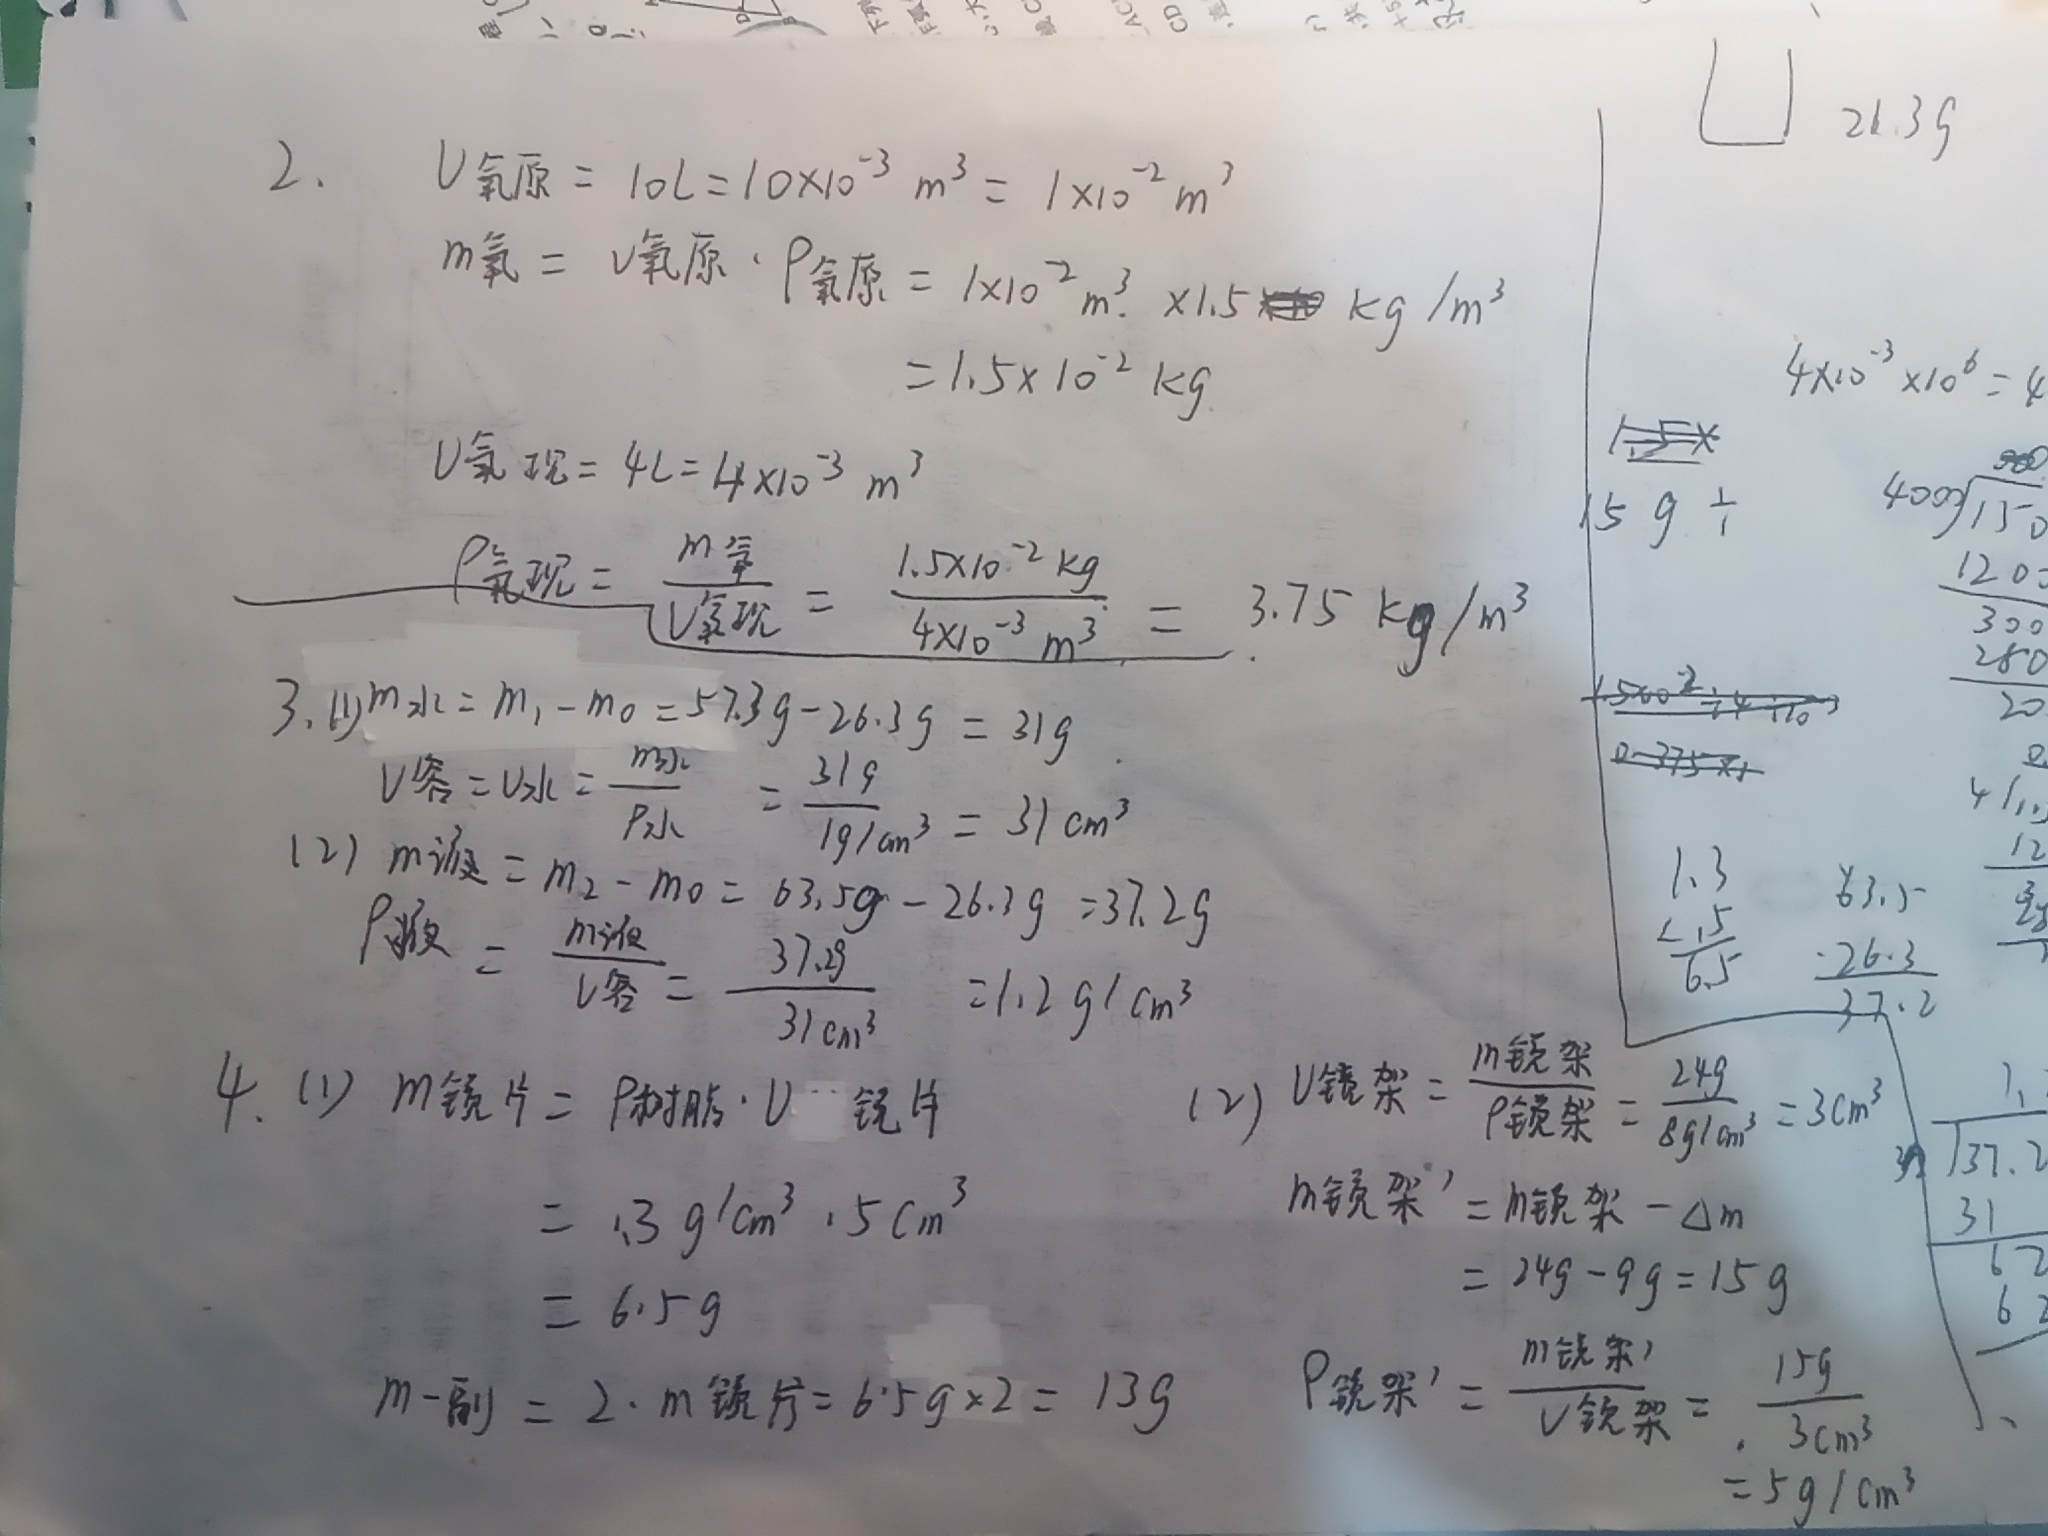 2. V氧原 = 10L = 10×10⁻³ m³ = 1×10⁻² m³
m氧 = V氧原 · ρ氧原 = 1×10⁻² m³ ×1.5 kg/m³
= 1.5×10⁻² kg
V氧现 = 4L = 4×10⁻³ m³
ρ氧现 = m氧/V氧现 = 1.5×10⁻² kg/4×10⁻³ m³ = 3.75 kg/m³
3. (1) m水 = m₁ - m₀ = 57.3g - 26.3g = 31g
V容 = V水 = m水/ρ水 = 31g/1g/cm³ = 31cm³
(2) m液 = m₂ - m₀ = 63.5g - 26.3g = 37.2g
ρ液 = m液/V容 = 37.2g/31cm³ = 1.2g/cm³
4. (1) m镜片 = ρ树脂 · V镜片
= .3g/cm³ · 5cm³
= 6.5g
m一副 = 2 · m镜片 = 6.5g×2 = 13g
(2) V镜架 = m镜架/ρ镜架 = 24g/8g/cm³ = 3cm³
m镜架' = m镜架 - Δm
= 24g - 9g = 15g
ρ镜架' = m镜架'/V镜架 = 15g/3cm³
= 5g/cm³
26.3g
4×10⁻³×10⁶ = 4
15g ÷
4000
1200
300
280
20
1.3
×.5
6.5
63.5
-26.3
37.2
37.2
31
62